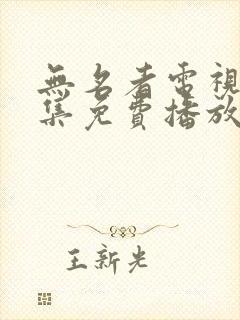 無名者電視
集免費播放
王新光